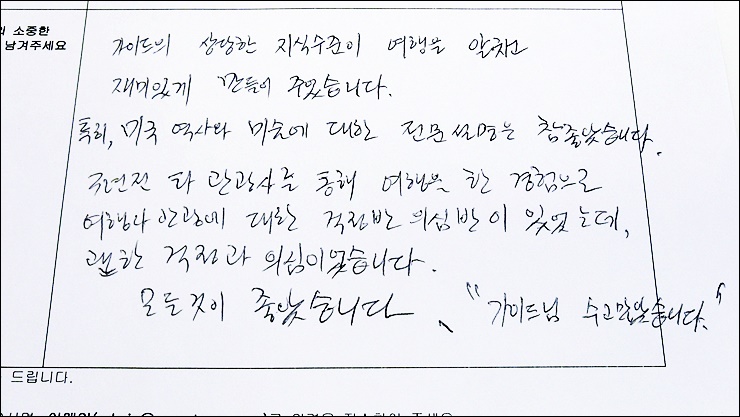 의 소중한
남겨주세요
가이드의 상당한 지식수준이 여행을 알차고
재미있게 만들어 주었습니다.
특히, 미국 역사와 미술에 대한 전문설명은 참좋았습니다.
타 관광사를 통해 여행을 한 경험으로
여행사 관광에 대한 걱정반 의심반이 있었는데,
괜한 걱정과 의심이었습니다.
모든것이 좋았습니다. "가이드님 수고많았습니다."
드립니다.